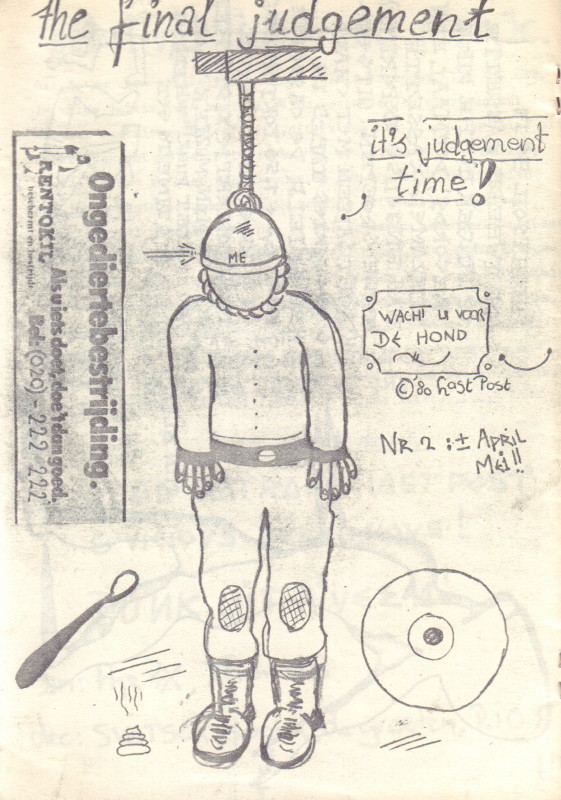 the final judgement
it's judgement
time!
Ongediertebestrijding.
Als u iets doet, doe 't dan goed.
RENTOKIL Bel: (020) - 222 222
beschermt en bestrijdt
ME
WACHT U VOOR
DE HOND
© '80 Last Post
NR 2 : ± April
Mei!!